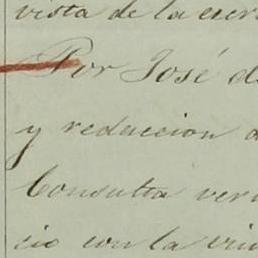 vista de la escri
Por José de
y reduccion d
Consulta ver
cio con la viu